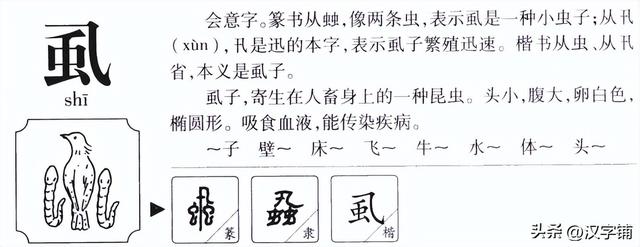 虱
shī
会意字。篆书从䖵，像两条虫，表示虱是一种小虫子；从卂
（xùn），卂是迅的本字，表示虱子繁殖迅速。楷书从虫、从卂
省，本义是虱子。
虱子，寄生在人畜身上的一种昆虫。头小，腹大，卵白色，
椭圆形。吸食血液，能传染疾病。
～子 壁～ 床～ 飞～ 牛～ 水～ 体～ 头～
篆
蝨 隶
虱 楷
头条 @汉字铺